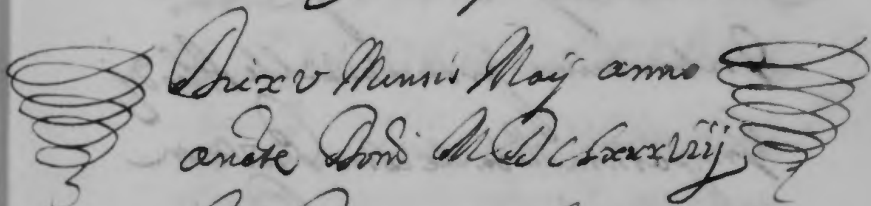 Die xv Mensis Maij anno
anãte Domĩ M D C Lxxxviij